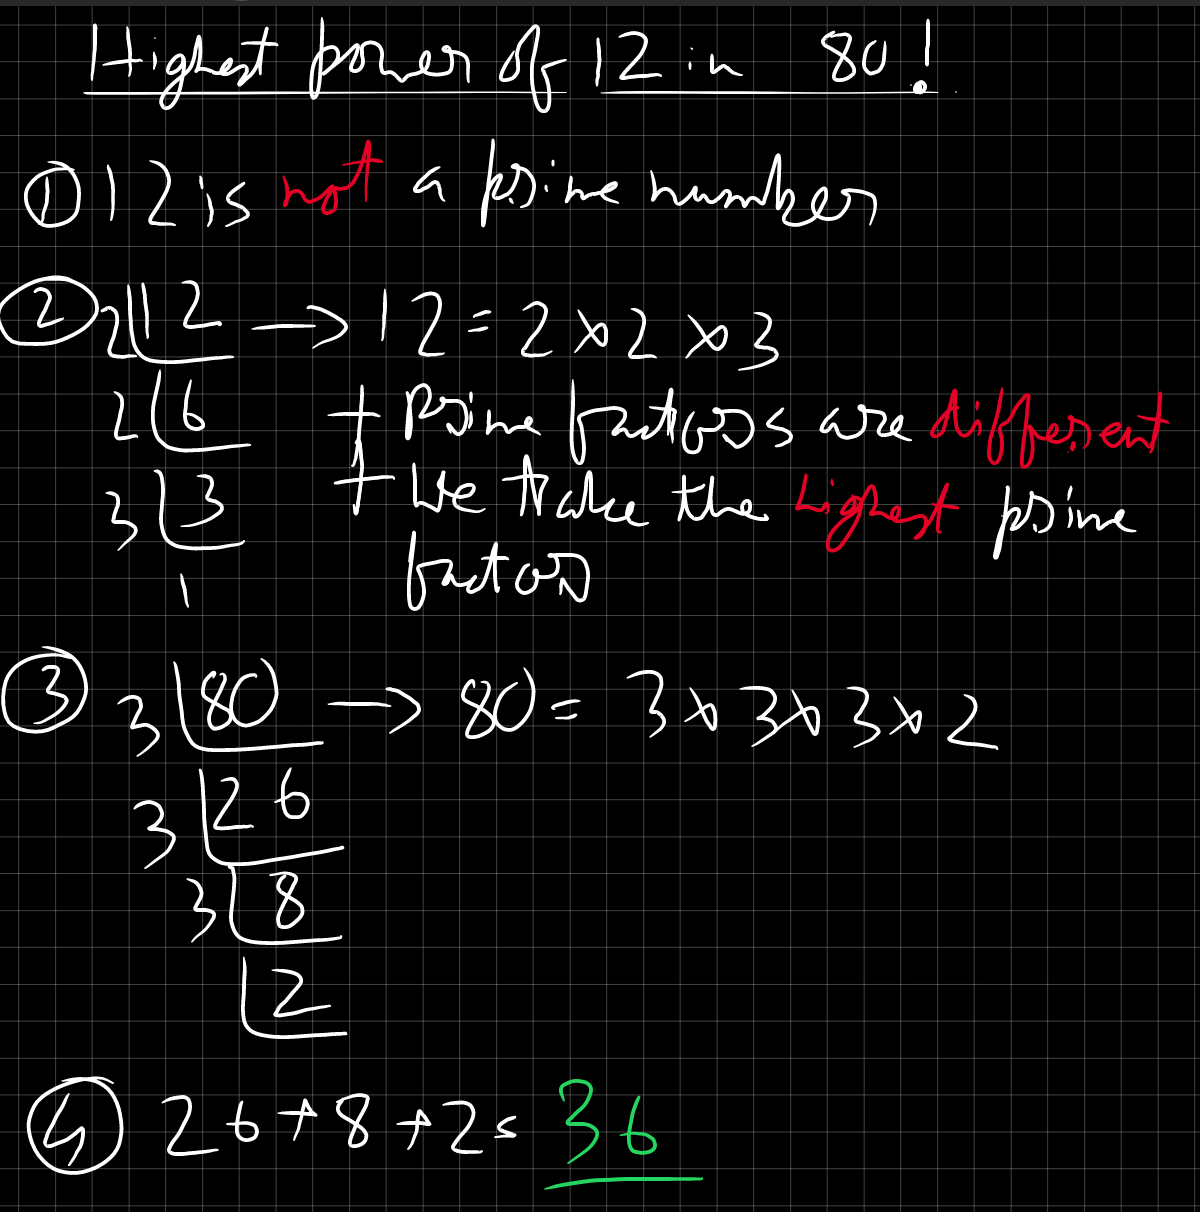 Highest power of 12 in 80!
① 12 is not a prime number
② 2 12 → 12 = 2 × 2 × 3
2 6 + Prime factors are different
3 3 + We take the highest prime
1 factor
③ 3 80 → 80 = 3 × 3 × 3 × 2
3 26
3 8
2
④ 26 + 8 + 2 = 36